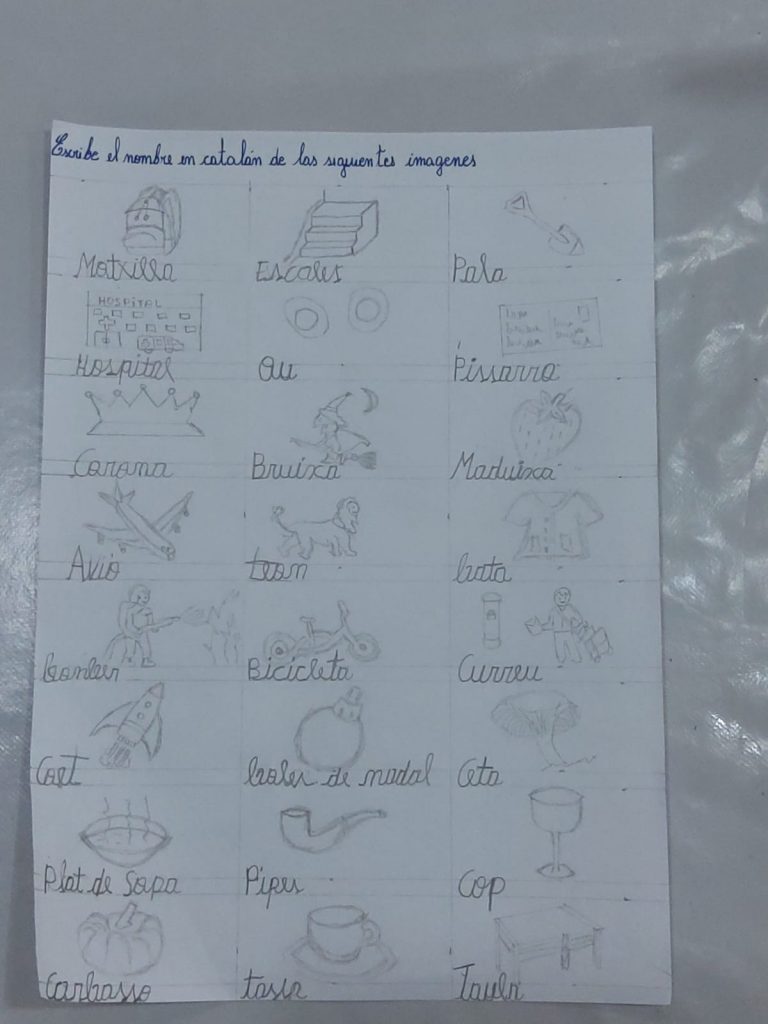 Escribe el nombre en catalán de las siguientes imagenes
Motxilla Escales Pala
HOSPITAL
Hospital Ou Pissarra
Corona Bruixa Maduixa
Avio Leon bata
bomber Bicicleta Curreu
Coet boles de nadal Ceta
Plat de Sopa Pipes Cop
Carbasso tasa Taula